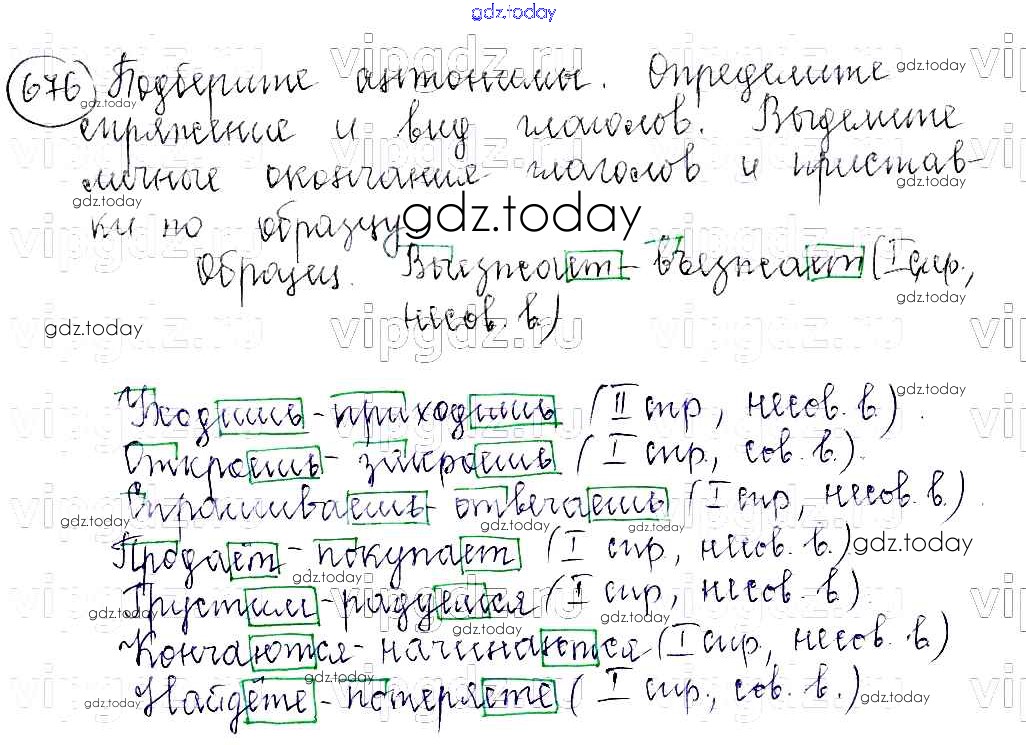 gdz.today
676 Подберите антонимы. Определите
спряжение и вид глаголов. Выделите
личные окончания глаголов и пристав-
ки по образцу
Образец. Выезжает - въезжает (I спр.,
несов. в.)
Уходишь - приходишь (II спр, несов. в.).
Откроешь - закроешь (I спр, сов. в.).
Спрашиваешь - отвечаешь (I спр, несов. в.).
Продаёт - покупает (I спр, несов. в.)
Грустим - радуемся (I спр, несов. в.)
Кончаются - начинаются (I спр, несов. в.)
Найдёте - потеряете (I спр., сов. в.)